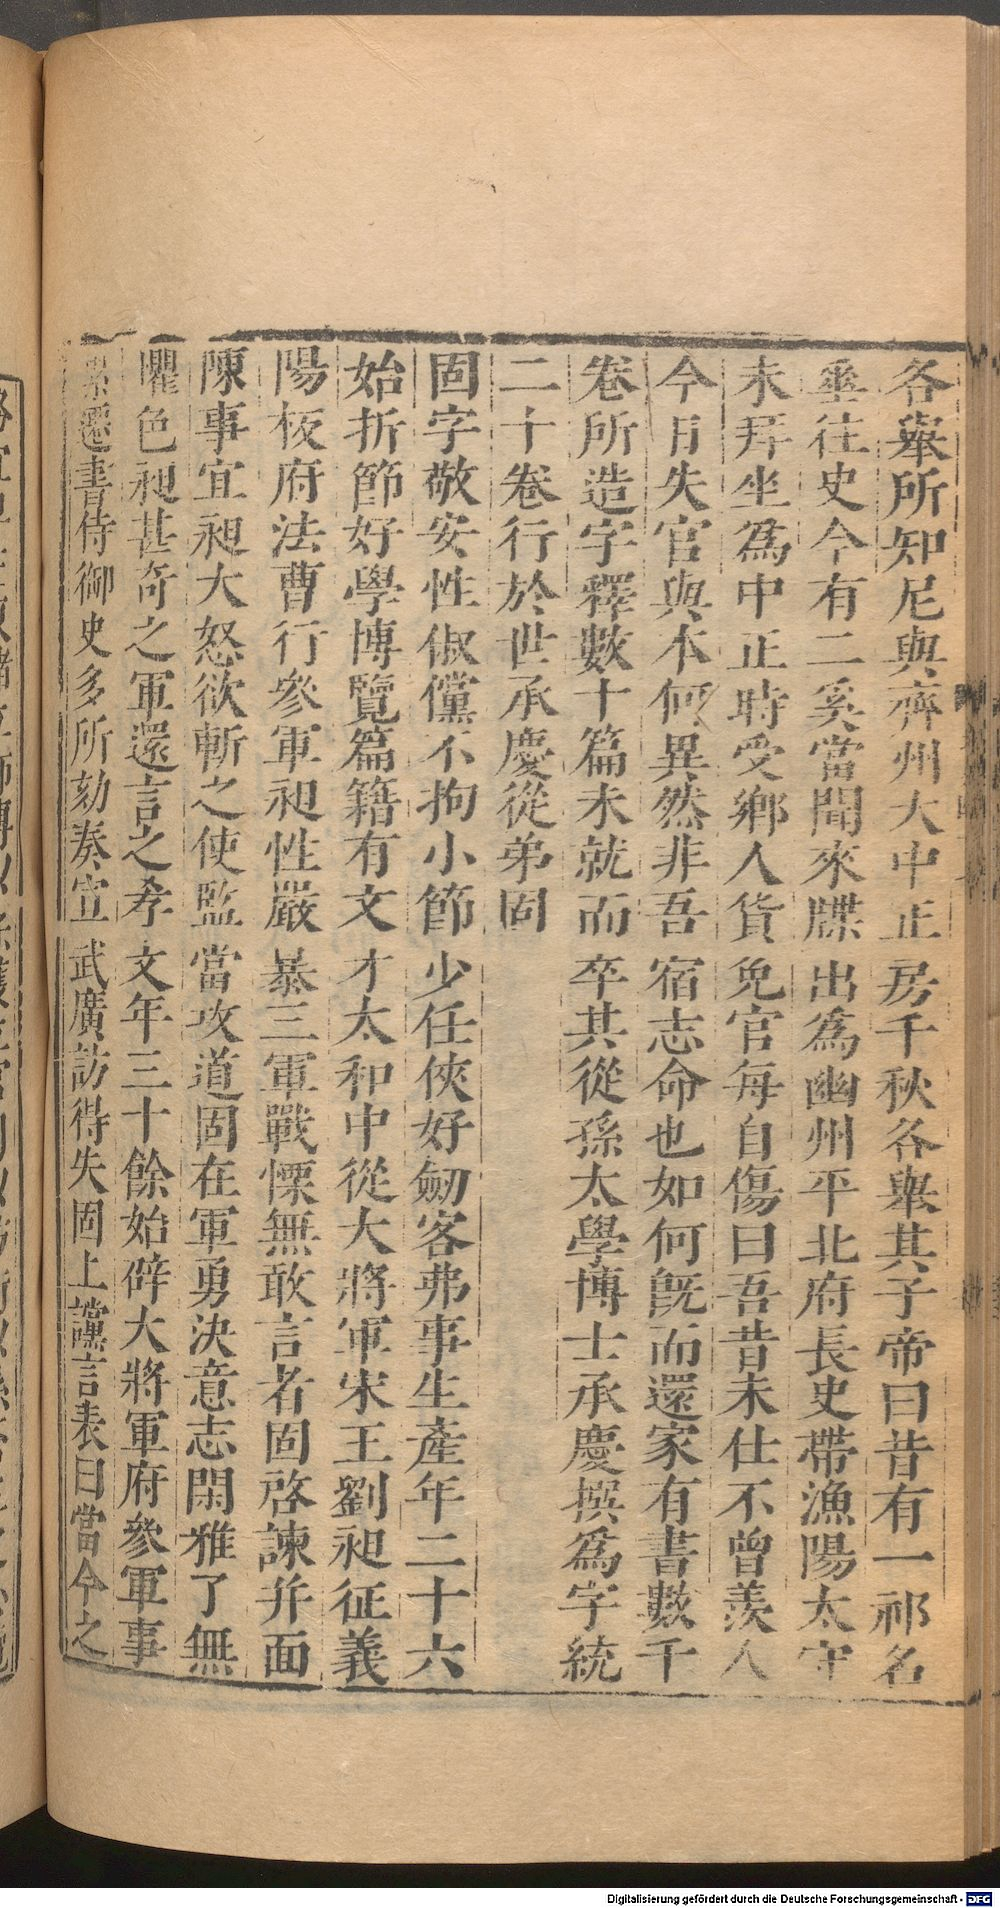 各舉所知尼與齊州大中正房千秋各舉其子帝曰昔有一祁名
垂往史今有二奚當聞來牒出為幽州平北府長史帶漁陽太守
未拜坐為中正時受鄉人貨免官每自傷曰吾昔未仕不曾羨人
今日失官與本何異然非吾宿志命也如何旣而還家有書數千
卷所造字釋數十篇未就而卒其從孫太學博士承慶撰為字統
二十卷行於世承慶從弟固
固字敬安性俶儻不拘小節少任俠好劒客弗事生產年二十六
始折節好學博覽篇籍有文才太和中從大將軍宋王劉昶征義
陽板府法曹行參軍昶性嚴暴三軍戰慄無敢言者固啓諫并面
陳事宜昶大怒欲斬之使監當攻道固在軍勇決意志閑雅了無
懼色昶甚奇之軍還言之孝文年三十餘始辟大將軍府參軍事
累遷書侍御史多所劾奏宣武廣訪得失固上讜言表曰當今之
Digitalisierung gefördert durch die Deutsche Forschungsgemeinschaft - DFG